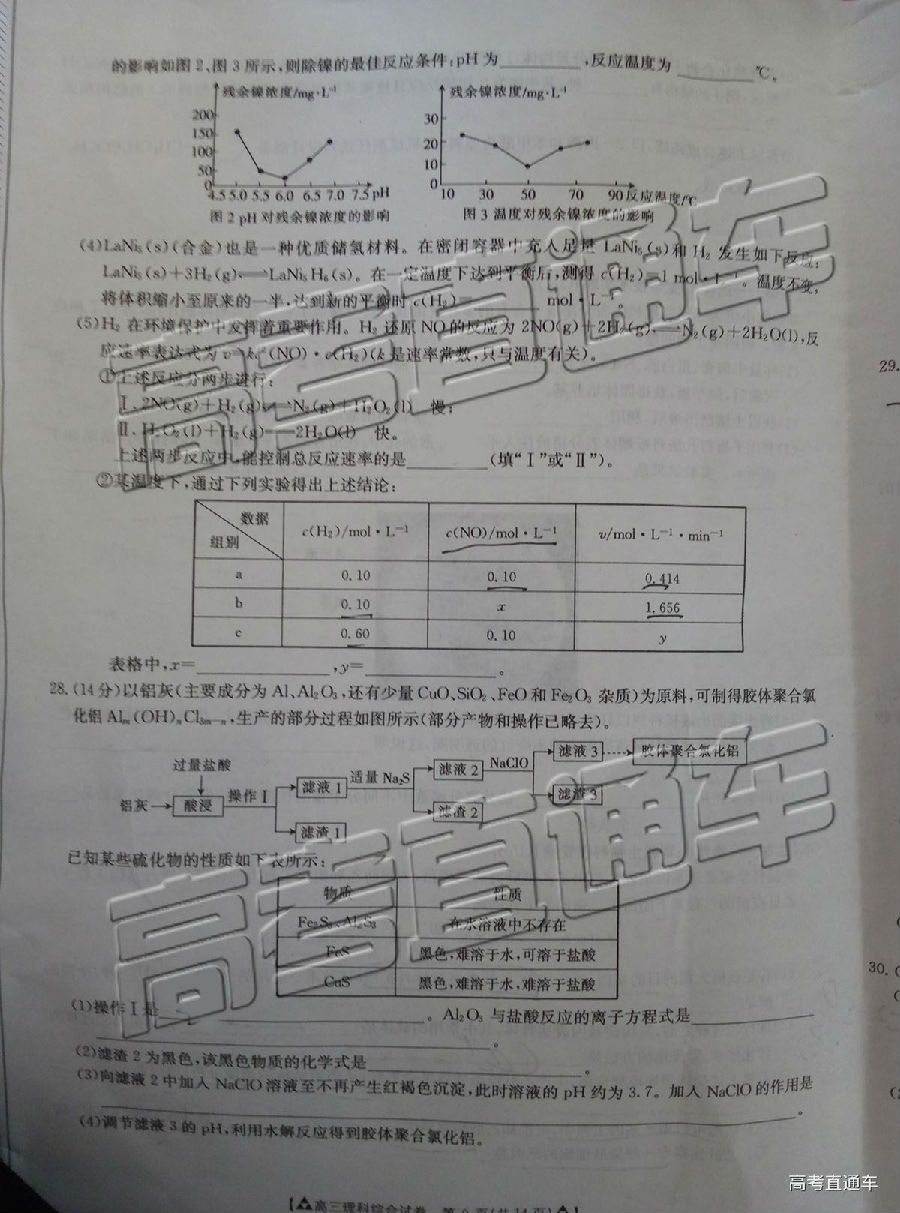 的影响如图2、图3所示,则除镍的最佳反应条件:pH为________,反应温度为________℃。
残余镍浓度/mg·L⁻¹
200
150
100
50
0
4.5 5.0 5.5 6.0 6.5 7.0 7.5 pH
图2 pH对残余镍浓度的影响
残余镍浓度/mg·L⁻¹
30
20
10
0
10 30 50 70 90 反应温度/℃
图3 温度对残余镍浓度的影响
(4)LaNi₅(s)(合金)也是一种优质储氢材料。在密闭容器中充入足量LaNi₅(s)和H₂发生如下反应:
LaNi₅(s)+3H₂(g)⇌LaNi₅H₆(s)。在一定温度下达到平衡后,测得c(H₂)=1 mol·L⁻¹。温度不变,
将体积缩小至原来的一半,达到新的平衡时c(H₂)=________mol·L⁻¹。
(5)H₂在环境保护中发挥着重要作用。H₂还原NO的反应为2NO(g)+2H₂(g)⇌N₂(g)+2H₂O(l),反
应速率表达式为v=k·c²(NO)·c(H₂)(k是速率常数,只与温度有关)。
①上述反应分两步进行:
Ⅰ.2NO(g)+H₂(g)⇌N₂(g)+H₂O₂(l) 慢;
Ⅱ.H₂O₂(l)+H₂(g)⇌2H₂O(l) 快。
上述两步反应中,能控制总反应速率的是________(填“Ⅰ”或“Ⅱ”)。
②某温度下,通过下列实验得出上述结论:
数据
组别
c(H₂)/mol·L⁻¹ c(NO)/mol·L⁻¹ v/mol·L⁻¹·min⁻¹
a 0.10 0.10 0.414
b 0.10 x 1.656
c 0.60 0.10 y
表格中,x=____________,y=____________。
28.(14分)以铝灰(主要成分为Al、Al₂O₃,还有少量CuO、SiO₂、FeO和Fe₂O₃杂质)为原料,可制得胶体聚合氯
化铝Alₘ(OH)ₙCl₃ₘ₋ₙ,生产的部分过程如图所示(部分产物和操作已略去)。
过量盐酸
铝灰 酸浸 操作Ⅰ 滤液1 适量Na₂S 滤液2 NaClO 滤液3 胶体聚合氯化铝
滤渣1 滤渣2 滤渣3
已知某些硫化物的性质如下表所示:
物质 性质
Fe₂S₃、Al₂S₃ 在水溶液中不存在
FeS 黑色,难溶于水,可溶于盐酸
CuS 黑色,难溶于水,难溶于盐酸
(1)操作Ⅰ是________________。Al₂O₃与盐酸反应的离子方程式是____________
________________________。
(2)滤渣2为黑色,该黑色物质的化学式是________________。
(3)向滤液2中加入NaClO溶液至不再产生红褐色沉淀,此时溶液的pH约为3.7。加入NaClO的作用是
________________________。
(4)调节滤液3的pH,利用水解反应得到胶体聚合氯化铝。
高三理科综合试卷
29.
30.
高考直通车
高考直通车
高考直通车